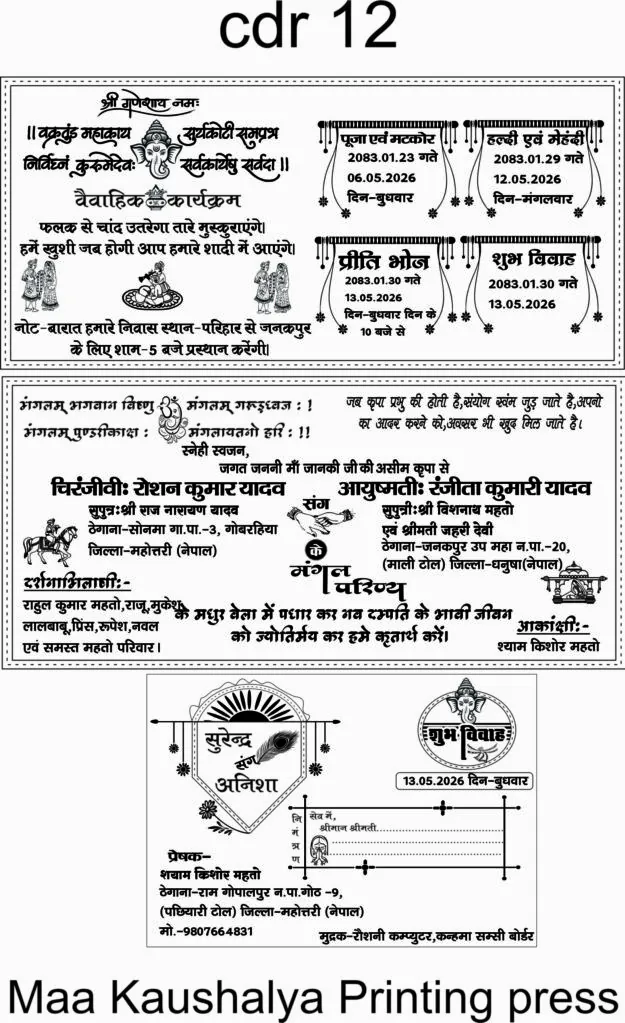 cdr 12
श्री गणेशाय नमः
।। वक्रतुंड महाकाय सुर्यकोटी समप्रभ
निर्विघ्नं कुरुमेदेवः सर्वकार्येषु सर्वदा ।।
वैवाहिक कार्यक्रम
फलक से चांद उतरेगा तारे मुस्कुराएंगे।
हमें खुशी जब होगी आप हमारे शादी में आएंगे।
नोट-बारात हमारे निवास स्थान-परिहार से जनकपुर
के लिए शाम-5 बजे प्रस्थान करेंगी।
पूजा एवं मटकोर
2083.01.23 गते
06.05.2026
दिन-बुधवार
हल्दी एवं मेहंदी
2083.01.29 गते
12.05.2026
दिन-मंगलवार
प्रीति भोज
2083.01.30 गते
13.05.2026
दिन-बुधवार दिन के
10 बजे से
शुभ विवाह
2083.01.30 गते
13.05.2026
मंगलम् भगवान विष्णु मंगलम् गरूड़ध्वज : !
मंगलम् पुण्डरीकाक्ष : मंगलायतनो हरि : !!
जब कृपा प्रभु की होती है,संयोग स्वंम जुड़ जाते है,अपनो
का आदर करने को,अवसर भी खुद मिल जाते है।
स्नेही स्वजन,
जगत जननी माँ जानकी जी की असीम कृपा से
चिरंजीवीः रोशन कुमार यादव
सुपुत्रःश्री राज नारायण यादव
ठेगाना-सोनमा गा.पा.-3, गोबरहिया
जिल्ला-महोत्तरी (नेपाल)
संग
आयुष्मतीः रंजीता कुमारी यादव
सुपुत्रीःश्री विशनाथ महतो
एवं श्रीमती जहरी देवी
ठेगाना-जनकपुर उप महा न.पा.-20,
(माली टोल) जिल्ला-धनुषा(नेपाल)
के
मंगल
परिणय
दर्शनाभिलाषी:-
राहुल कुमार महतो,राजू,मुकेश,
लालबाबू,प्रिंस,रूपेश,नवल
एवं समस्त महतो परिवार।
के मधुर वेला में पधार कर नव दम्पति के भावी जीवन
को ज्योतिर्मय कर हमे कृतार्थ करें।
आकांक्षी:-
श्याम किशोर महतो
सुरेन्द्र
संग
अनिशा
शुभ विवाह
13.05.2026 दिन-बुधवार
निमंत्रण
सेवा में,
श्रीमान श्रीमती
प्रेषक-
श्याम किशोर महतो
ठेगाना-राम गोपालपुर न.पा.गोठ -9,
(पछियारी टोल) जिल्ला-महोत्तरी (नेपाल)
मो.-9807664831
मुद्रक-रौशनी कम्प्युटर,कन्हमा सम्सी बोर्डर
Maa Kaushalya Printing press